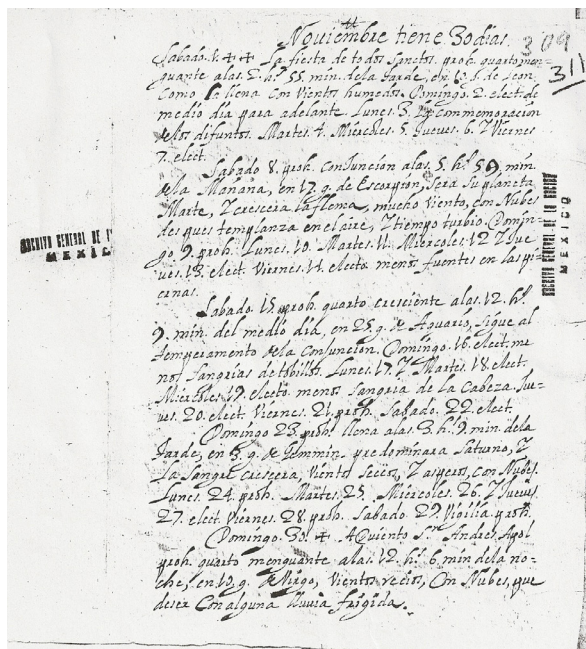 Noviembre tiene 30 dias.
309
311
Sabado 1. ++ La fiesta de todos Sanctos. proh. quarto men=
guante alas 2. hs. 55. min. dela tarde, en 10. g. de Leon.
Como la llena con Vientos humedos. Domingo. 2. elect. de
medio dia para adelante Lunes. 3. La commemoracion
delos difuntos. Martes. 4. Miercoles. 5. Jueves. 6. Y Viernes
7. elect.
Sabado 8. proh. conjuncion alas. 5. hs. 59. min.
dela Mañana, en 17. g. de Escorpion, sera Su planeta
Marte, Y crescera la flema, mucho viento, con Nubes
despues templanza en el aire, Y tiempo turbio. Domin-
go. 9. proh. Lunes. 10. Martes. 11. Miercoles. 12. Y Jue
ves. 13. elect. Viernes. 14. electo menos fuentes en las pi
ernas.
Sabado 15. proh. quarto cresciente alas. 12. hs.
9. min. del medio dia, en 25 g. de Aquario, sigue al
temperamento dela Conjuncion. Domingo. 16. elect. me
nos Sangrias de tobillos. Lunes. 17. Y Martes. 18. elect.
Miercoles. 19. electo. menos sangria de la Cabeza. Jue-
ves. 20. elect. Viernes. 21. proh. Sabado. 22. elect.
Domingo 23. proh. llena alas. 3. hs. 9. min. dela
tarde, en 3. g. de Geminin. predominara Saturno, Y
La Sangre crescera, Vientos Secos, Y asperos, con Nubes.
Lunes. 24. proh. Martes. 25. Miercoles. 26. Y Jueves
27. elect. Viernes. 28. proh. Sabado. 29. Vigilia. proh.
Domingo. 30. + Adviento S.n Andres Apol
proh. quarto menguante alas. 12. hs. 6. min dela no-
che, en 10. g. de Virgo, Vientos recios, Con Nubes, que
deser Con alguna lluvia frigida.
ARCHIVO GENERAL DE L
MEXIC
ARCHIVO GENERAL DE LA NACION
MEXICO